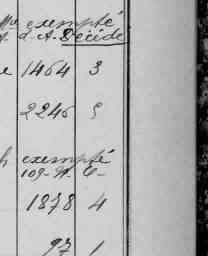 exempté
d. A. Décidé
1464 3
2246 5
exempté
109- A. C-
1878 4
97 1